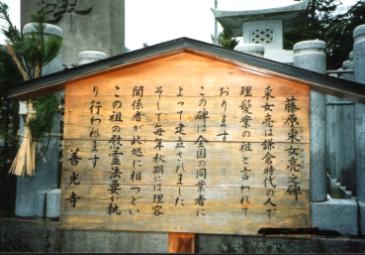 藤原采女亮之碑
采女亮は鎌倉時代の人で
理髪業の祖と言われて
おります
この碑は全国の同業者に
よって建立されました
そして毎年秋期には理容
関係者が此処に相つどい
この祖の慰霊法要が執
り行われます
善光寺